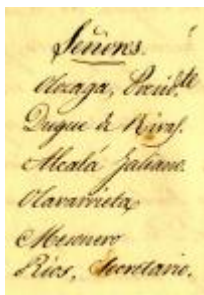 Señores.
Olozaga, Presid.te
Duque de Rivas.
Alcalá Galiano.
Olavarrieta,
Mesonero
Rios, Secretario.